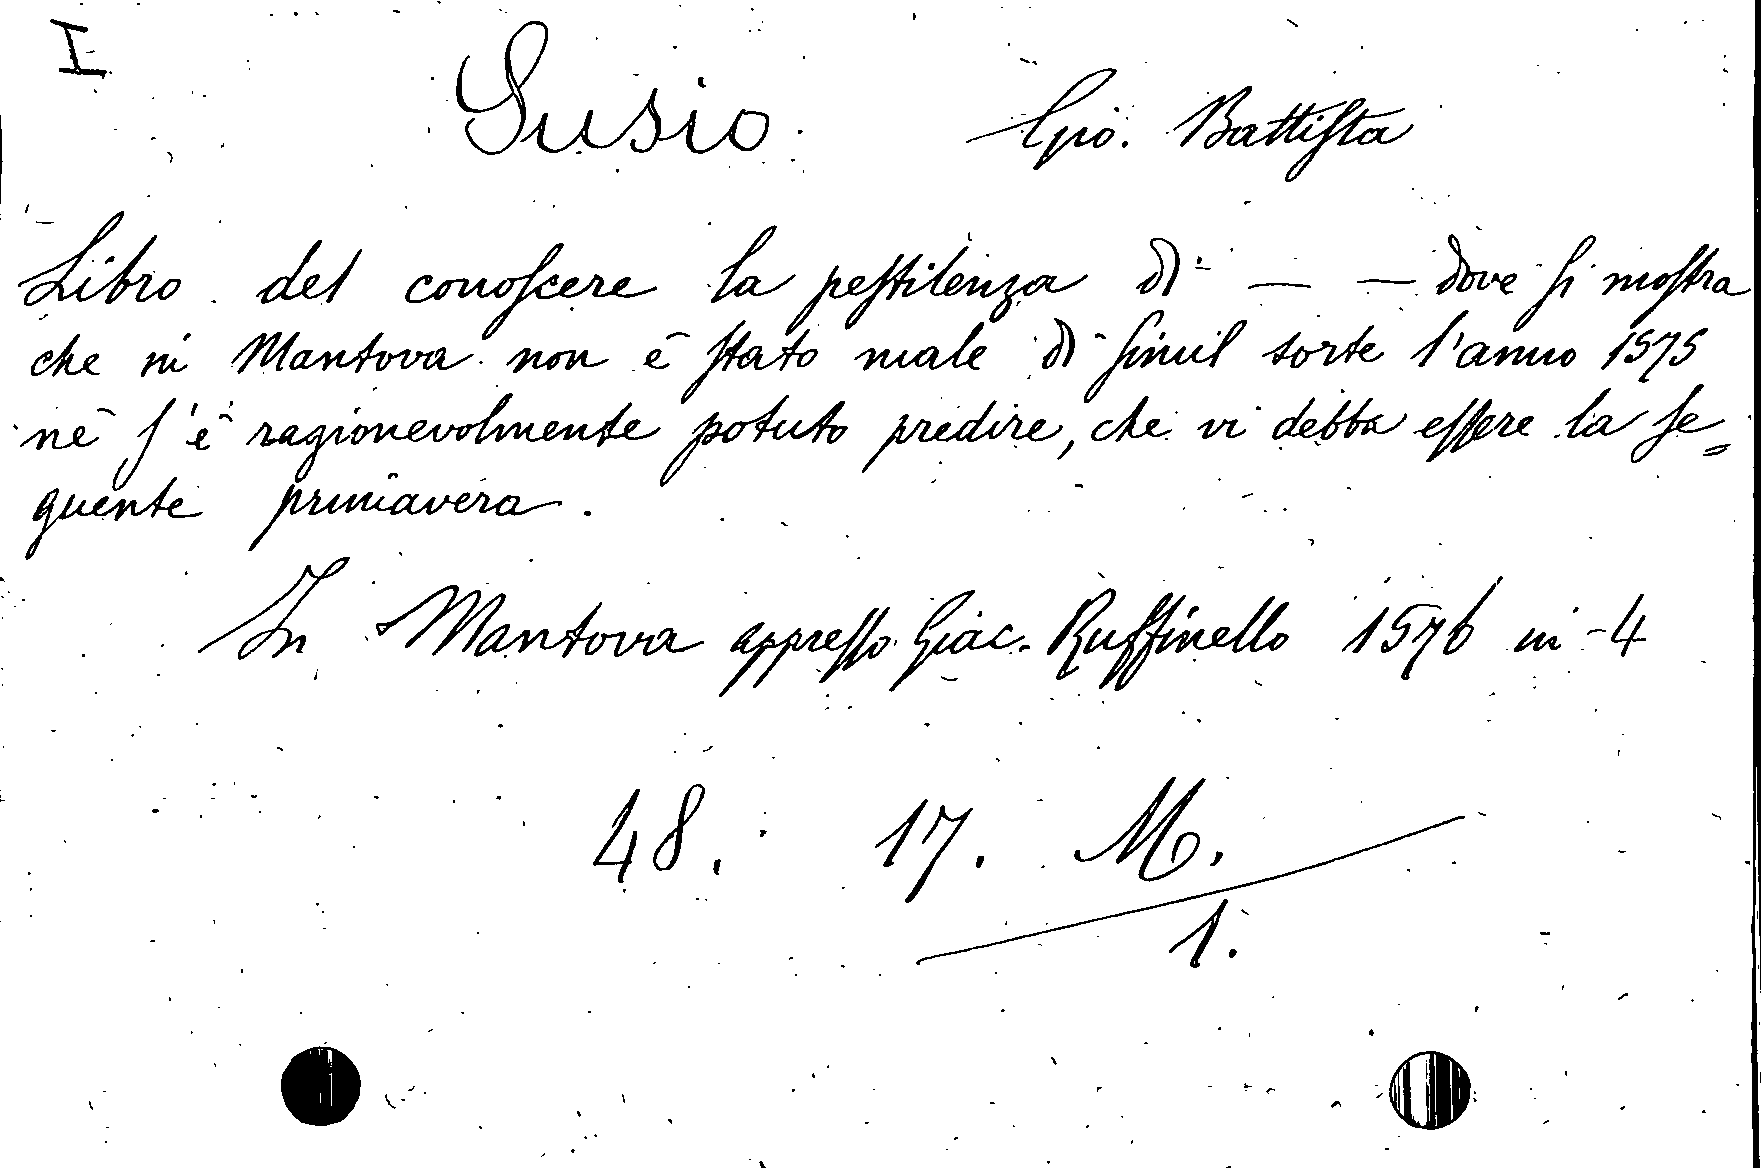 I
Susio Gio. Battista
Libro del conoscere la pestilenza di — — dove si mostra
che in Mantova non è stato male di simil sorte l'anno 1575
nè s'è ragionevolmente potuto predire, che vi debba essere la se=
guente primavera.
In Mantova appresso Giac. Ruffinello 1576 in-4
48. 17. M.
1.